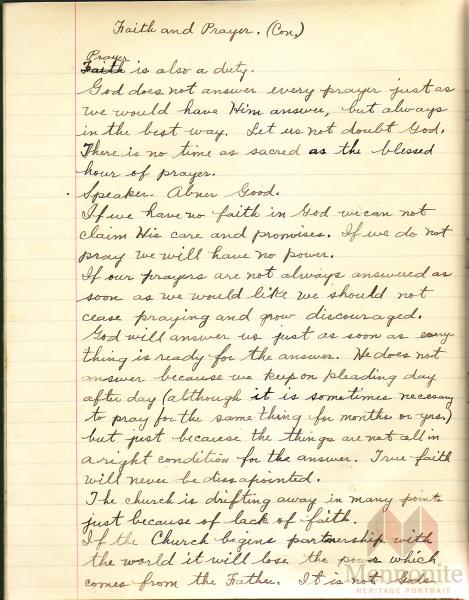 Faith and Prayer. (Con.)
Prayer
Faith is also a duty.
God does not answer every prayer just as
we would have Him answer, but always
in the best way. Let us not doubt God.
There is no time as sacred as the blessed
hour of prayer.
Speaker - Abner Good.
If we have no faith in God we can not
claim His care and promises. If we do not
pray we will have no power.
If our prayers are not always answered as
soon as we would like we should not
cease praying and grow discouraged.
God will answer us just as soon as every-
thing is ready for the answer. He does not
answer because we keep on pleading day
after day (although it is sometimes necessary
to pray for the same thing for months or yrs.)
but just because the things are not all in
a right condition for the answer. True faith
will never be dissapointed.
The church is drifting away in many points
just because of lack of faith.
If the Church begins partnership with
the world it will lose the power which
comes from the Father. It is not God
Mennonite
HERITAGE PORTRAIT